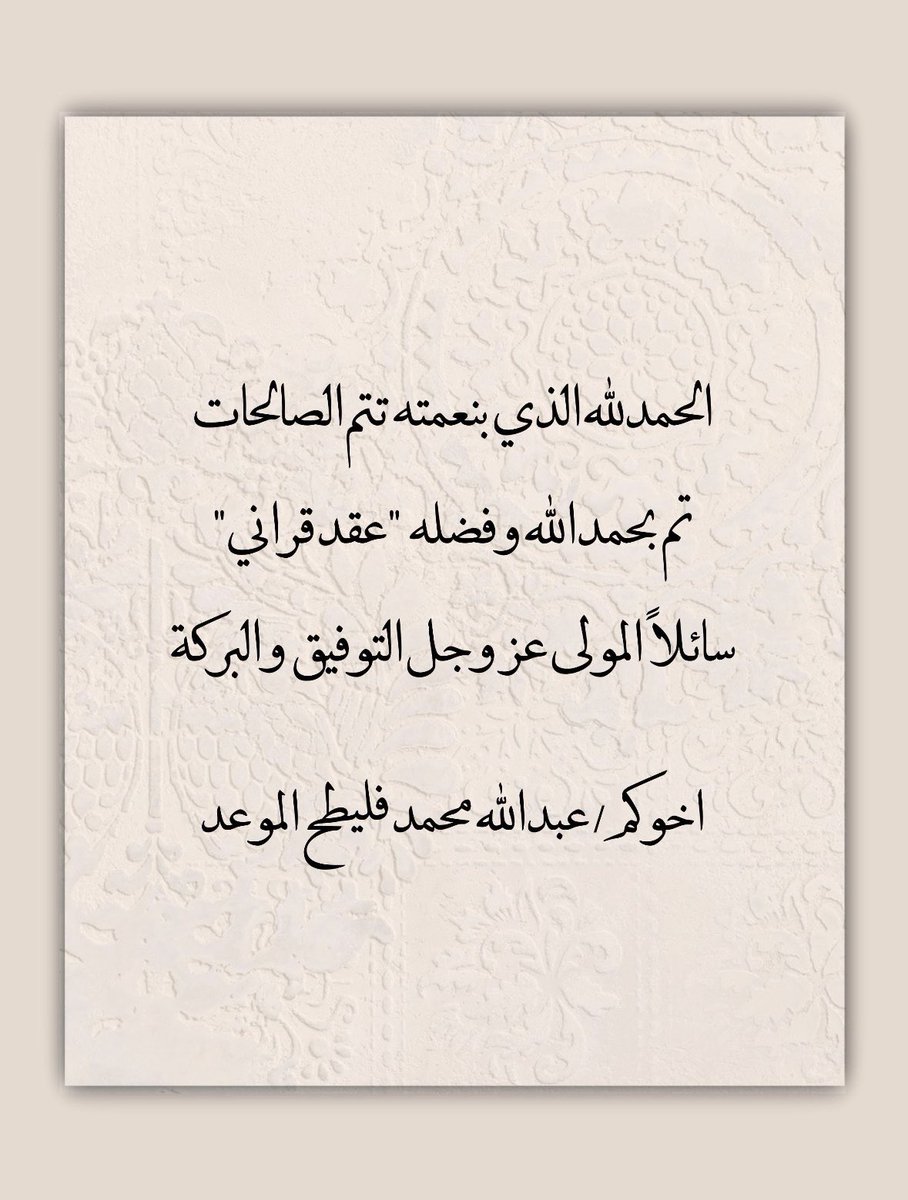 الحمدلله الذي بنعمته تتم الصالحات
تم بحمدالله وفضله "عقد قراني"
سائلاً المولى عز وجل التوفيق والبركة
اخوكم / عبدالله محمد فليطح الموعد